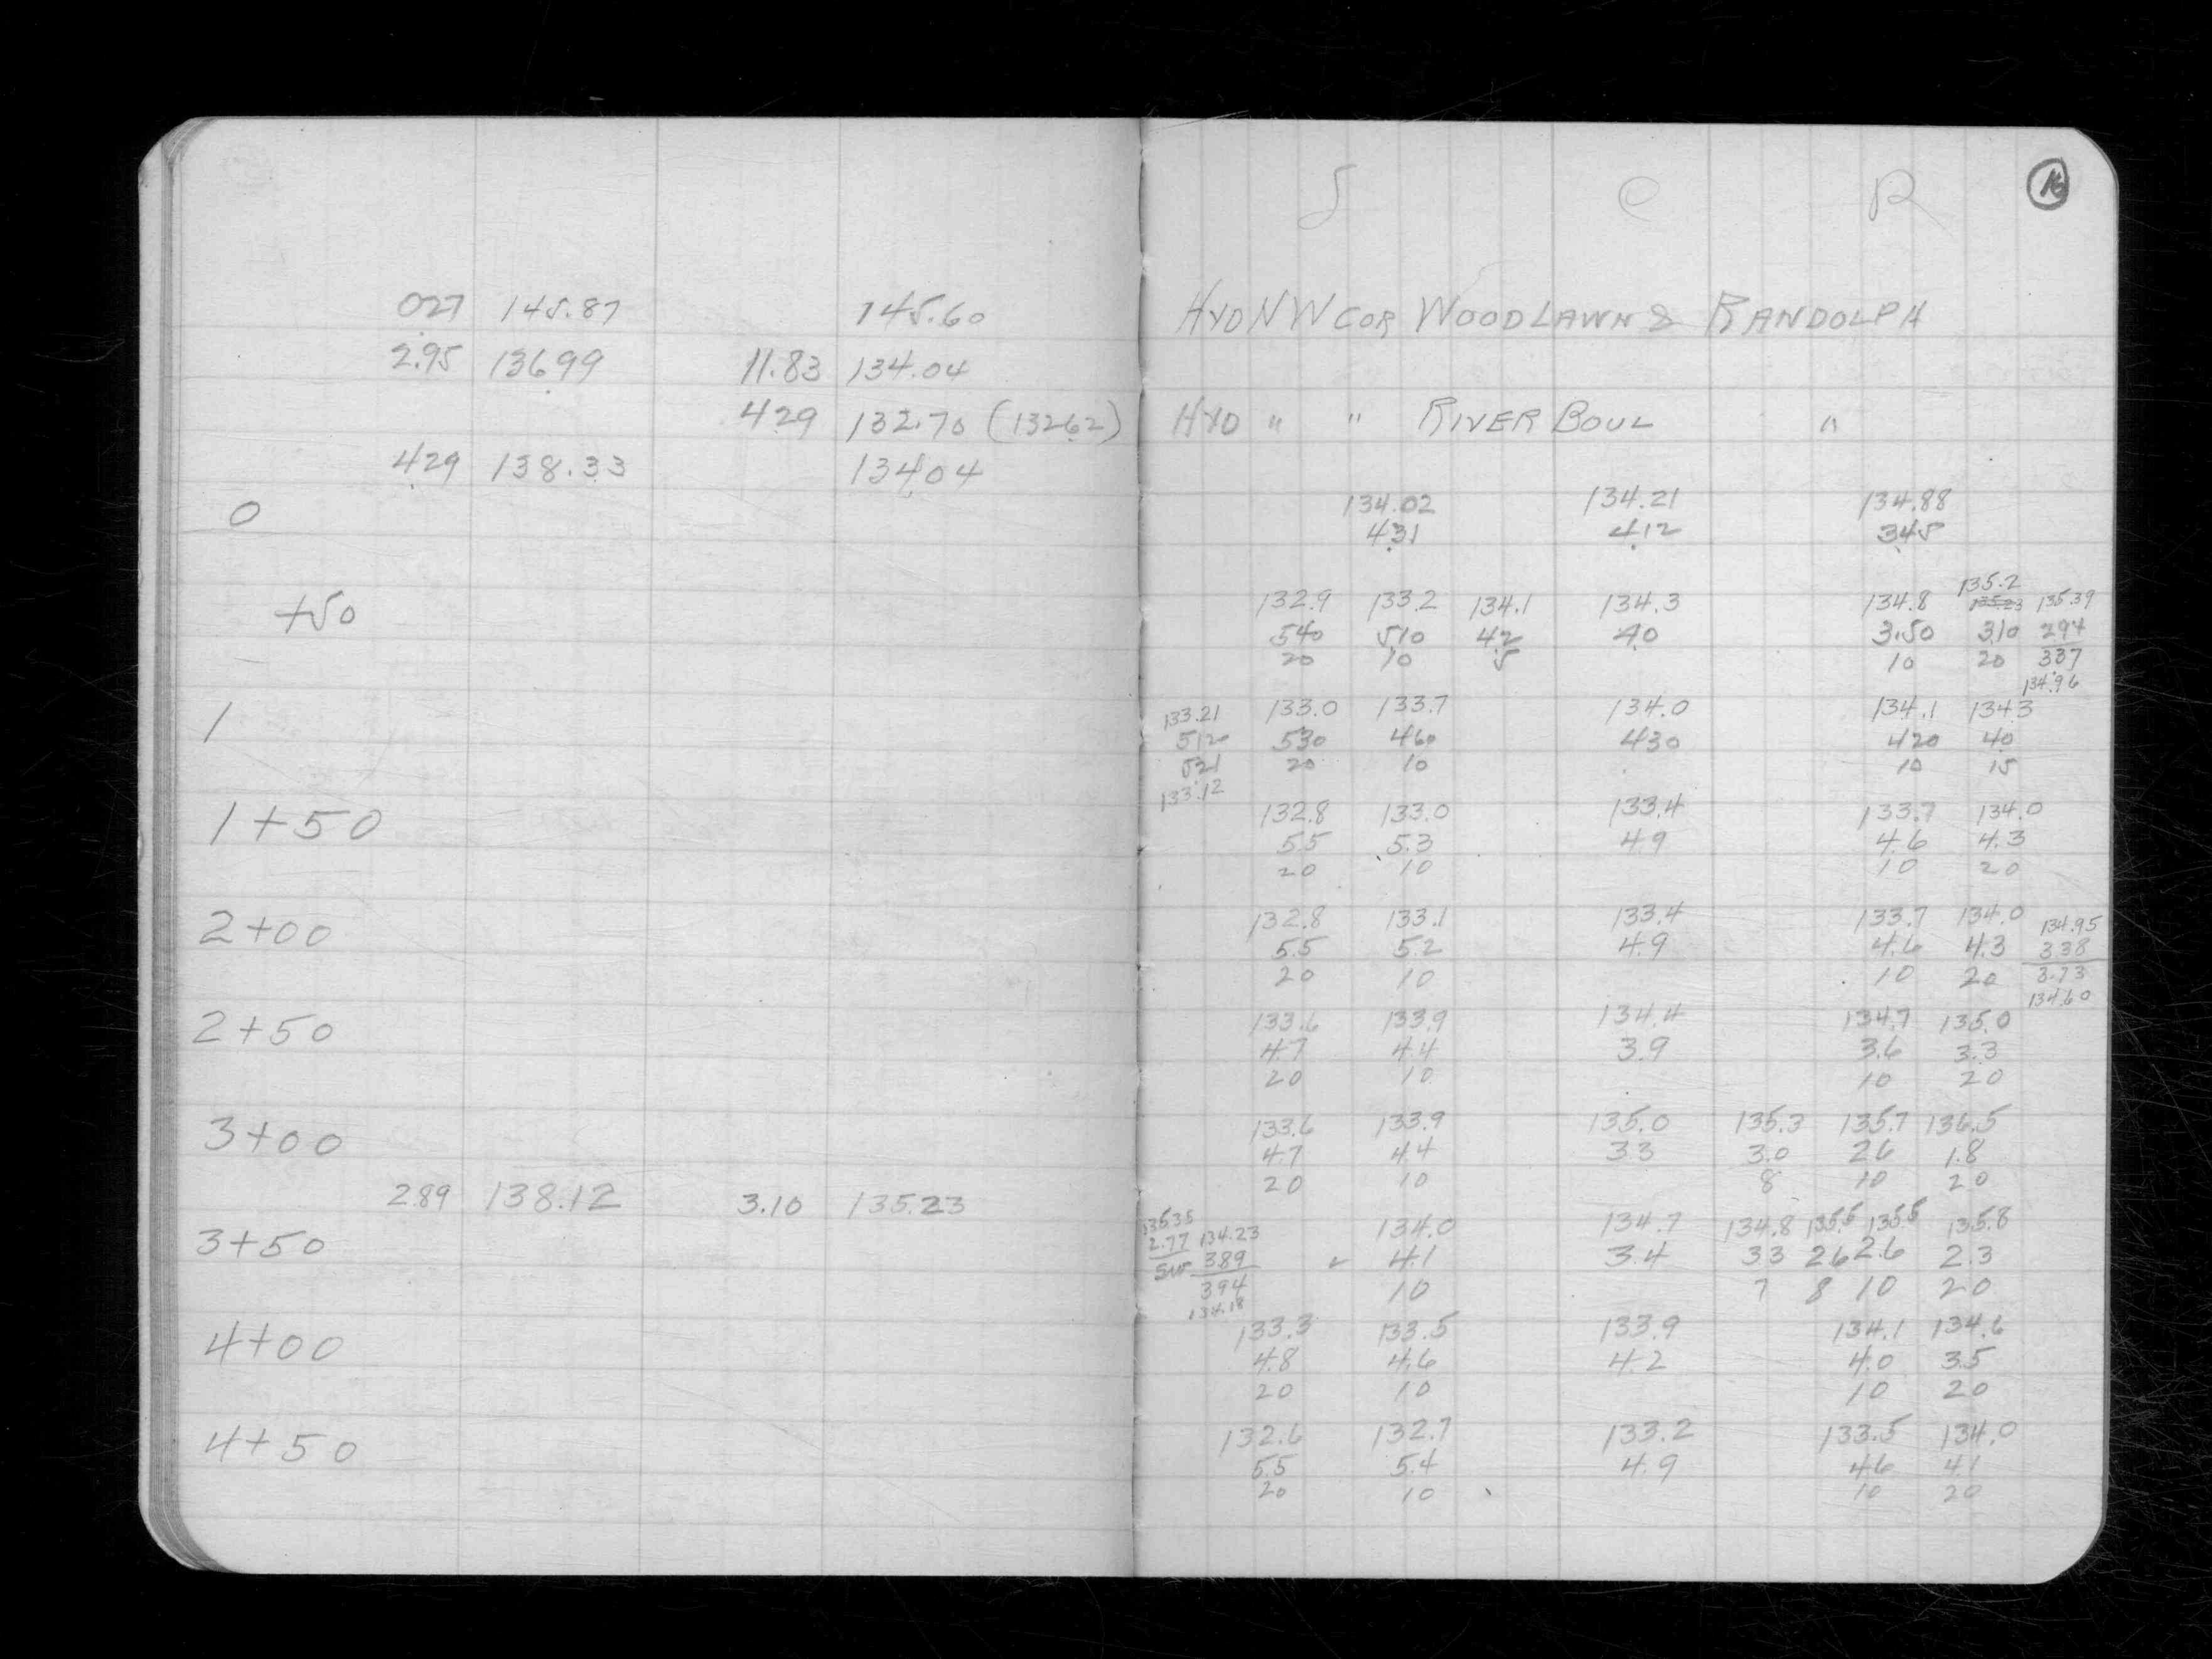 S C R 16
027 145.87 145.60 HYD NW COR WOODLAWN & RANDOLPH
2.95 136.99 11.83 134.04
4.29 132.70 (132.62) HYD " " RIVER BOUL "
4.29 138.33 134.04
0 134.02 134.21 134.88
4.31 4.12 3.45
135.2
+50 132.9 133.2 134.1 134.3 134.8 135.23 135.39
5.40 5.10 4.2 4.0 3.50 3.10 2.94
20 10 5 10 20 3.37
134.96
1 133.21 133.0 133.7 134.0 134.1 134.3
5.12 5.30 4.60 4.30 4.20 4.0
5.21 20 10 10 15
133.12
1+50 132.8 133.0 133.4 133.7 134.0
5.5 5.3 4.9 4.6 4.3
20 10 10 20
2+00 132.8 133.1 133.4 133.7 134.0 134.95
5.5 5.2 4.9 4.6 4.3 3.38
20 10 10 20 3.73
134.60
2+50 133.6 133.9 134.4 134.7 135.0
4.7 4.4 3.9 3.6 3.3
20 10 10 20
3+00 133.6 133.9 135.0 135.3 135.7 136.5
4.7 4.4 3.3 3.0 2.6 1.8
20 10 8 10 20
2.89 138.12 3.10 135.23
3+50 135.35 134.23 134.0 134.7 134.8 135.5 135.5 135.8
2.77 3.89 4.1 3.4 3.3 2.6 2.6 2.3
3.94 10 7 8 10 20
134.18
4+00 133.3 133.5 133.9 134.1 134.6
4.8 4.6 4.2 4.0 3.5
20 10 10 20
4+50 132.6 132.7 133.2 133.5 134.0
5.5 5.4 4.9 4.6 4.1
20 10 10 20